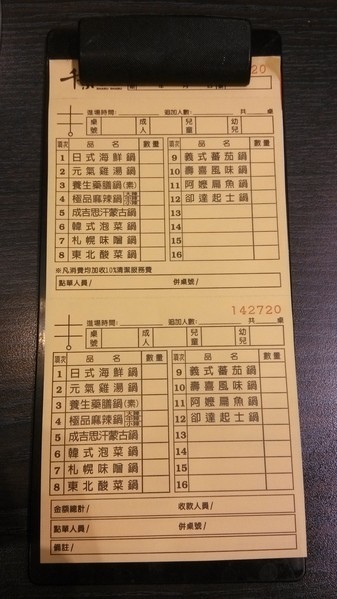 千
20
進場時間: 追加人數: 共 桌
桌號 成人 兒童 幼兒
項次 品名 數量 項次 品名 數量
1 日式海鮮鍋 9 義式蕃茄鍋
2 元氣雞湯鍋 10 壽喜風味鍋
3 養生藥膳鍋(素) 11 阿嬤扁魚鍋
4 極品麻辣鍋 12 卻達起士鍋
5 成吉思汗蒙古鍋 13
6 韓式泡菜鍋 14
7 札幌味噌鍋 15
8 東北酸菜鍋 16
※凡消費均加收10%清潔服務費
點單人員/ 併桌號/
142720
進場時間: 追加人數: 共 桌
桌號 成人 兒童 幼兒
項次 品名 數量 項次 品名 數量
1 日式海鮮鍋 9 義式蕃茄鍋
2 元氣雞湯鍋 10 壽喜風味鍋
3 養生藥膳鍋(素) 11 阿嬤扁魚鍋
4 極品麻辣鍋 12 卻達起士鍋
5 成吉思汗蒙古鍋 13
6 韓式泡菜鍋 14
7 札幌味噌鍋 15
8 東北酸菜鍋 16
金額總計/ 收款人員/
點單人員/ 併桌號/
備註/